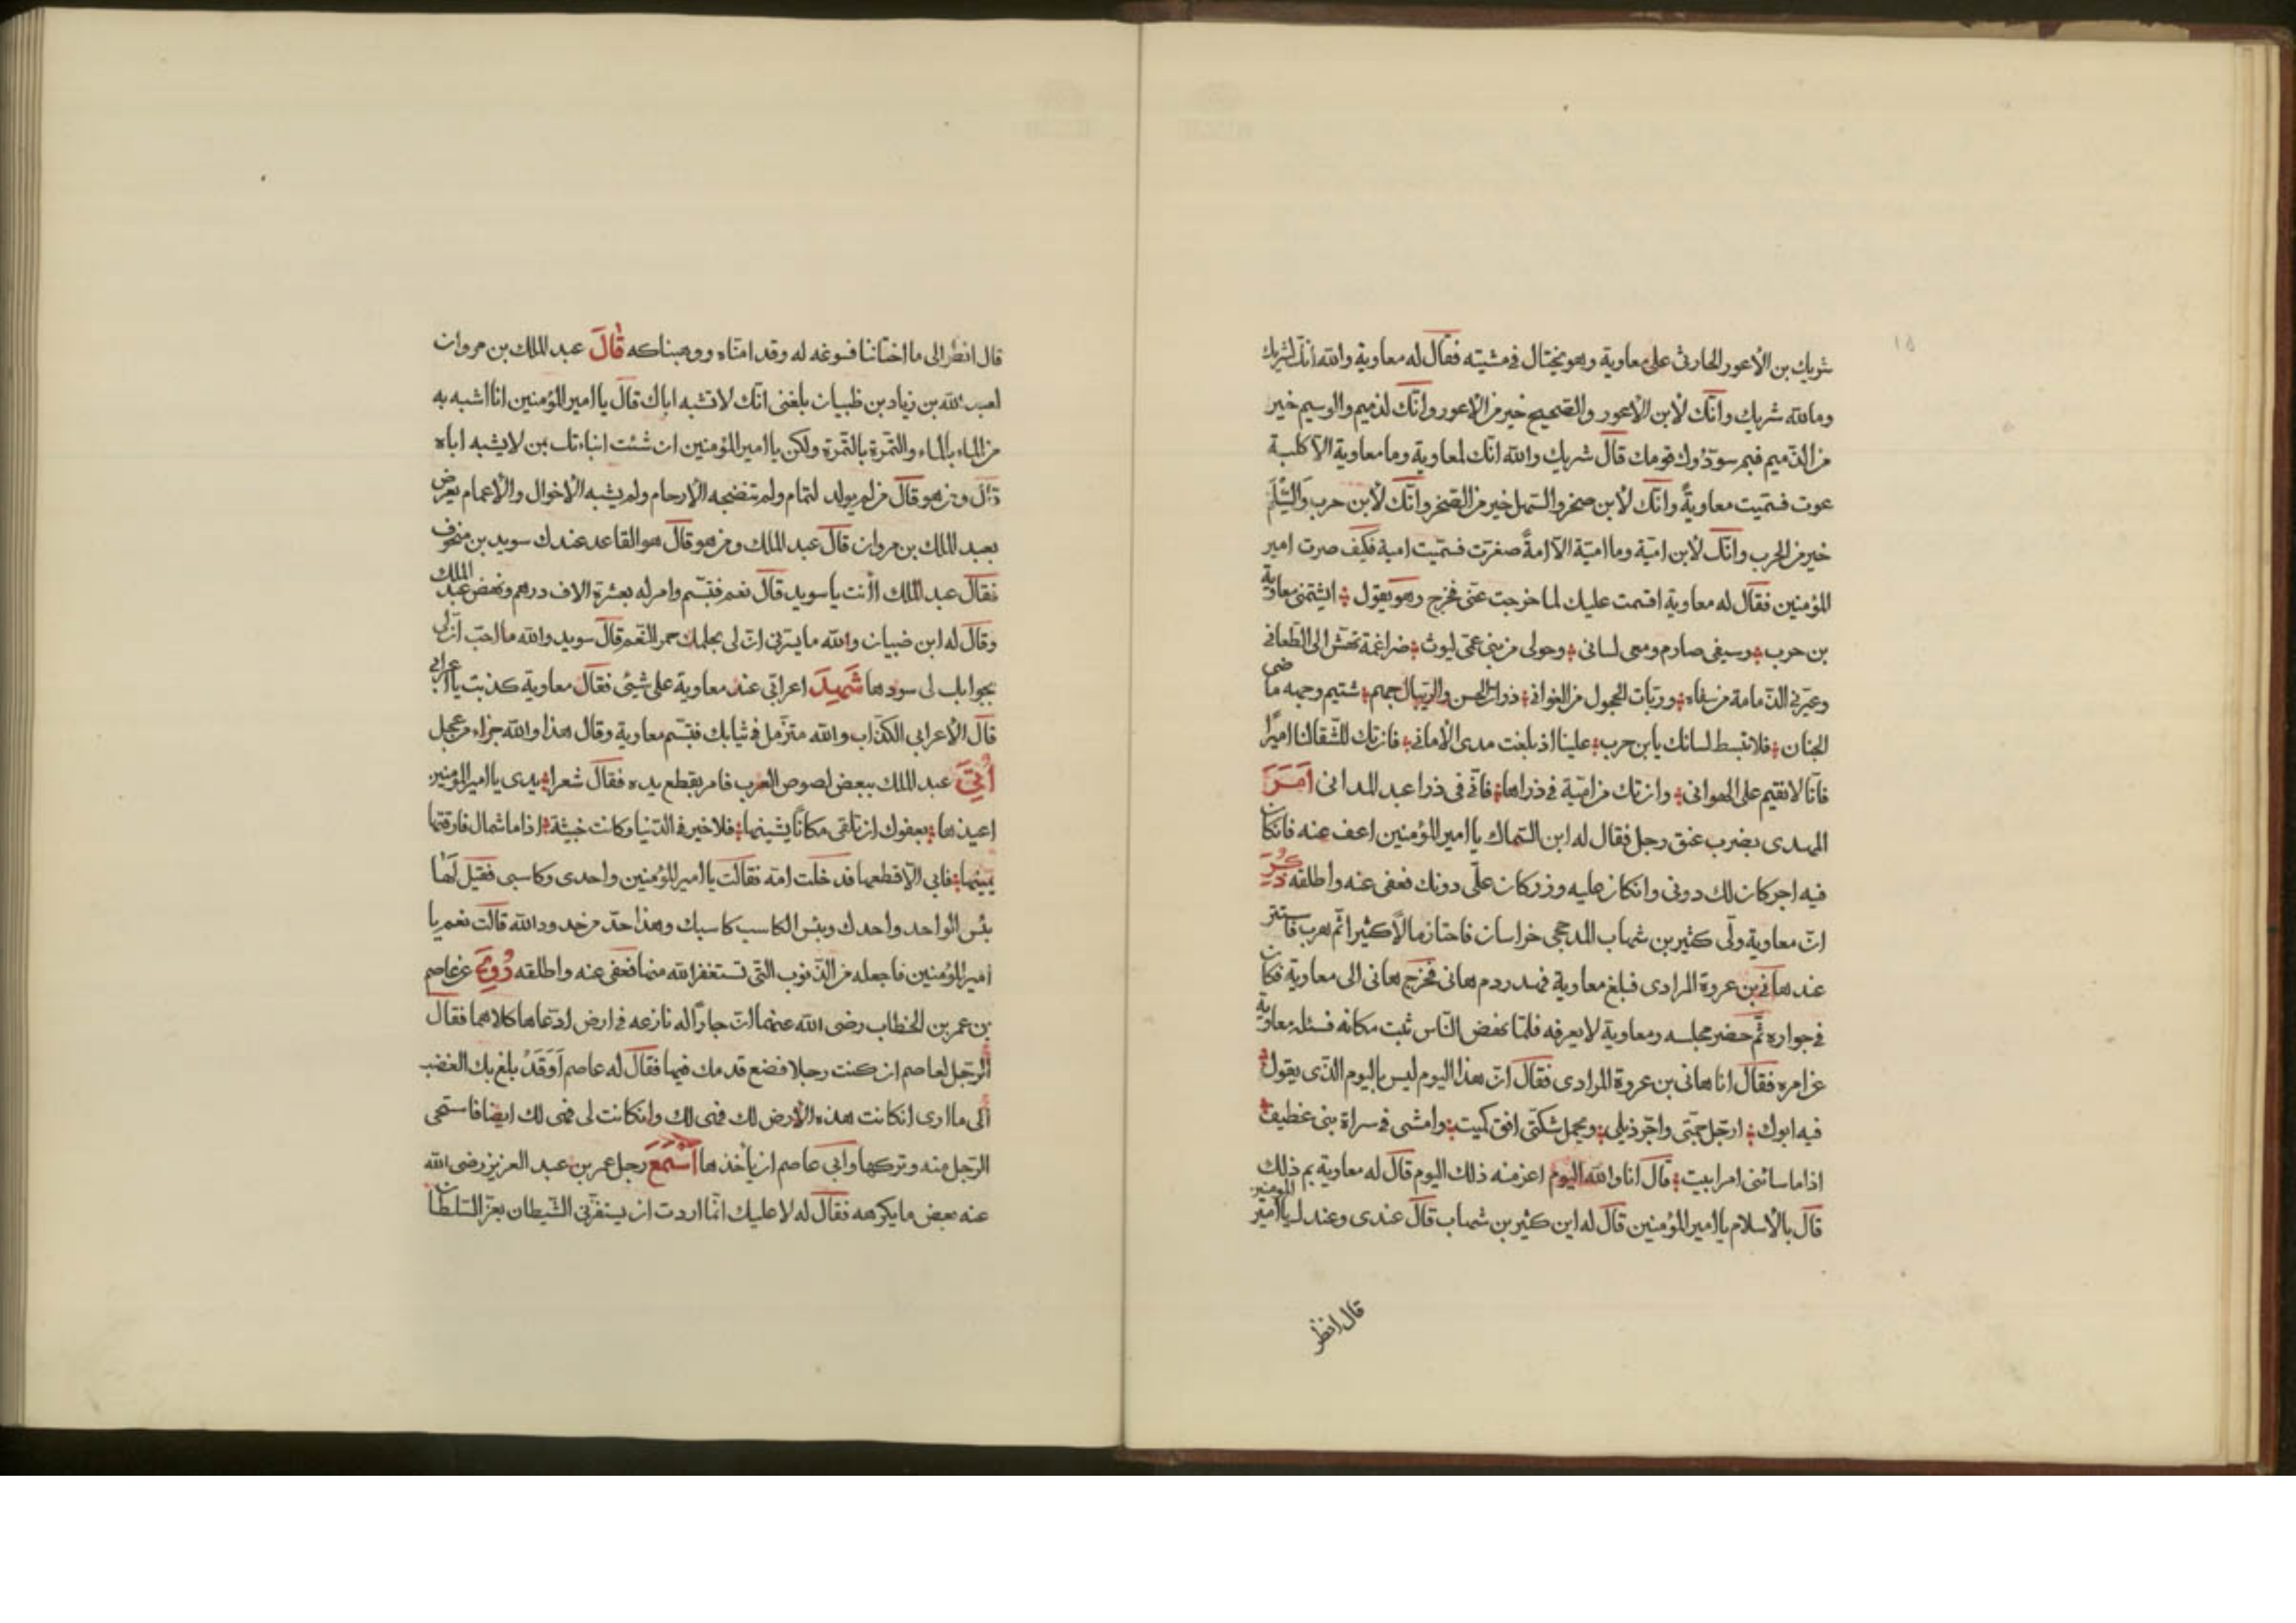 شريك بن الأعور الحارثى على معاوية وهو يختال فى مشيته فقال له معاوية والله انك لشريك
وما لله شريك وانك لابن الاعور والصحيح خير من الاعور وانك لذميم والوسيم خير
من الذميم فبم سودوك قومك قال شريك والله انك لمعاوية وما معاوية الا كلبة
عوت فسميت معاوية وانك لابن صخر والسهل خير من الصخر وانك لابن حرب والسلم
خير من الحرب وانك لابن امية وما امية الا امة صغرت فسميت امية فكيف صرت امير
المؤمنين فقال له معاوية اقسمت عليك لما خرجت عنى فخرج وهو يقول ايشتمنى معاوية
بن حرب وسيفى صارم ومعى لسانى وحولى من بنى عمى ليوث ضراغمة تهش الى الطعان
وعيرنى الدمامة من سفاه وربات الحجول من الغوانى ذوات الحسن والريبال جهم شتيم وجهه ماضى
الجنان فلا تبسط لسانك يابن حرب علينا اذ بلغت مدى الأمانى فان تك للشقا لنا اميرا
فانا لا نقيم على الهوانى وان تك من امية فى ذراها فانى فى ذرا عبد المدانى امر
المهدى بضرب عنق رجل فقال له ابن السماك يا امير المؤمنين اعف عنه فانكان
فيه اجر كان لك دونى وانكان عليه وزر كان على دونك فعفى عنه واطلقه ذكر
ان معاوية ولى كثير بن شهاب المدحجى خراسان فاحتاز مالا كثيرا ثم هرب فاستتر
عند هانى بن عروة المرادى فبلغ معاوية فهدر دم هانى فخرج هانى الى معاوية فكان
فى جواره ثم حضر مجلسه ومعاوية لا يعرفه فلما نهض الناس ثبت مكانه فسئله معاوية
عن امره فقال انا هانى بن عروة المرادى فقال ان هذا اليوم ليس باليوم الذى يقول
فيه ابوك ارجل جمتى واجر ذيلى ويحمل شكتى افق كميت وامشى فى سراة بنى غطيف
اذا ما سائنى امر ابيت قال انا والله اليوم اعز منه ذلك اليوم قال له معاوية بم ذلك
قال بالأسلام يا امير المؤمنين قال له اين كثير بن شهاب قال عندى وعندك يا امير المومنين
قال انظر
قال انظر الى ما اختاننا فسوغه له وقد امناه ووهبناكه قال عبد الملك بن مروان
لعبيد الله بن زياد بن ظبيان بلغنى انك لا تشبه اباك قال يا امير المؤمنين انا اشبه به
من الماء بالماء والتمرة بالتمرة ولكن يا امير المؤمنين ان شئت انباءتك بمن لا يشبه اباه
قال ومن هو قال من لم يولد لتمام ولم تنضجه الارحام ولم يشبه الاخوال والأعمام يعرض
بعبد الملك بن مروان قال عبد الملك ومن هو قال هو القاعد عندك سويد بن منجوف
فقال عبد الملك اانت يا سويد قال نعم فتبسم وامر له بعشرة الاف درهم ونهض عبد الملك
وقال له ابن ضبيان والله ما يسرنى ان لى بحلمك حمر النعم قال سويد والله ما احب ان لى
بجوابك لى سودها شهد اعرابى عند معاوية على شيئ فقال معاوية كذبت يا اعرابى
قال الأعرابى الكذاب والله متزمل فى ثيابك فتبسم معاوية وقال هذا والله جزاء من عجل
اتى عبد الملك ببعض لصوص العرب فامر بقطع يده فقال شعرا يدى يا امير المؤمنين
اعيذها بعفوك ان تلقى مكانا يشينها فلا خير فى الدنيا وكانت خبيثة اذا ما شمال فارقتها
يمينها فابى الا قطعها فدخلت امه فقالت يا امير المؤمنين واحدى وكاسبى فقيل لها
بئس الواحد واحدك وبئس الكاسب كاسبك وهذا حد من حدود الله قالت نعم يا
امير المؤمنين فاجعله من الذنوب التى تستغفر الله منها فعفى عنه واطلقه روى عن عاصم
بن عمر بن الخطاب رضى الله عنهما ان جارا له نازعه فى ارض ادعاها كلاهما فقال
الرجل لعاصم ان كنت رجلا فضع قدمك فيها فقال له عاصم اوقد بلغ بك الغضب
الى ما ارى انكانت هذه الارض لك فهى لك وانكانت لى فهى لك ايضا فاستحى
الرجل منه وتركها وابى عاصم ان ياخذها اسمع رجل عمر بن عبد العزيز رضى الله
عنه بعض ما يكرهه فقال له لا عليك انما اردت ان يستفزنى الشيطان بعز السلطان